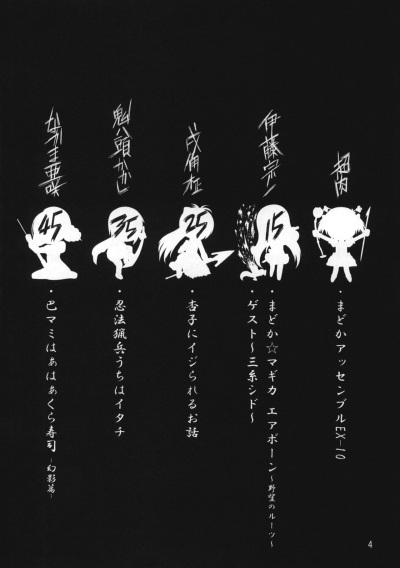 ・まどかアッセンブルEX-10
伊藤宗一
15
・まどか☆マギカ エアボーン~野望のルーツ~
ゲスト~三系シド~
25
・杏子にイジられるお話
魁八頭かじ
35
・忍法猟兵うちはイタチ
なかま亜咲
45
・巴マミはぁはぁくら寿司-幻影篇-
4